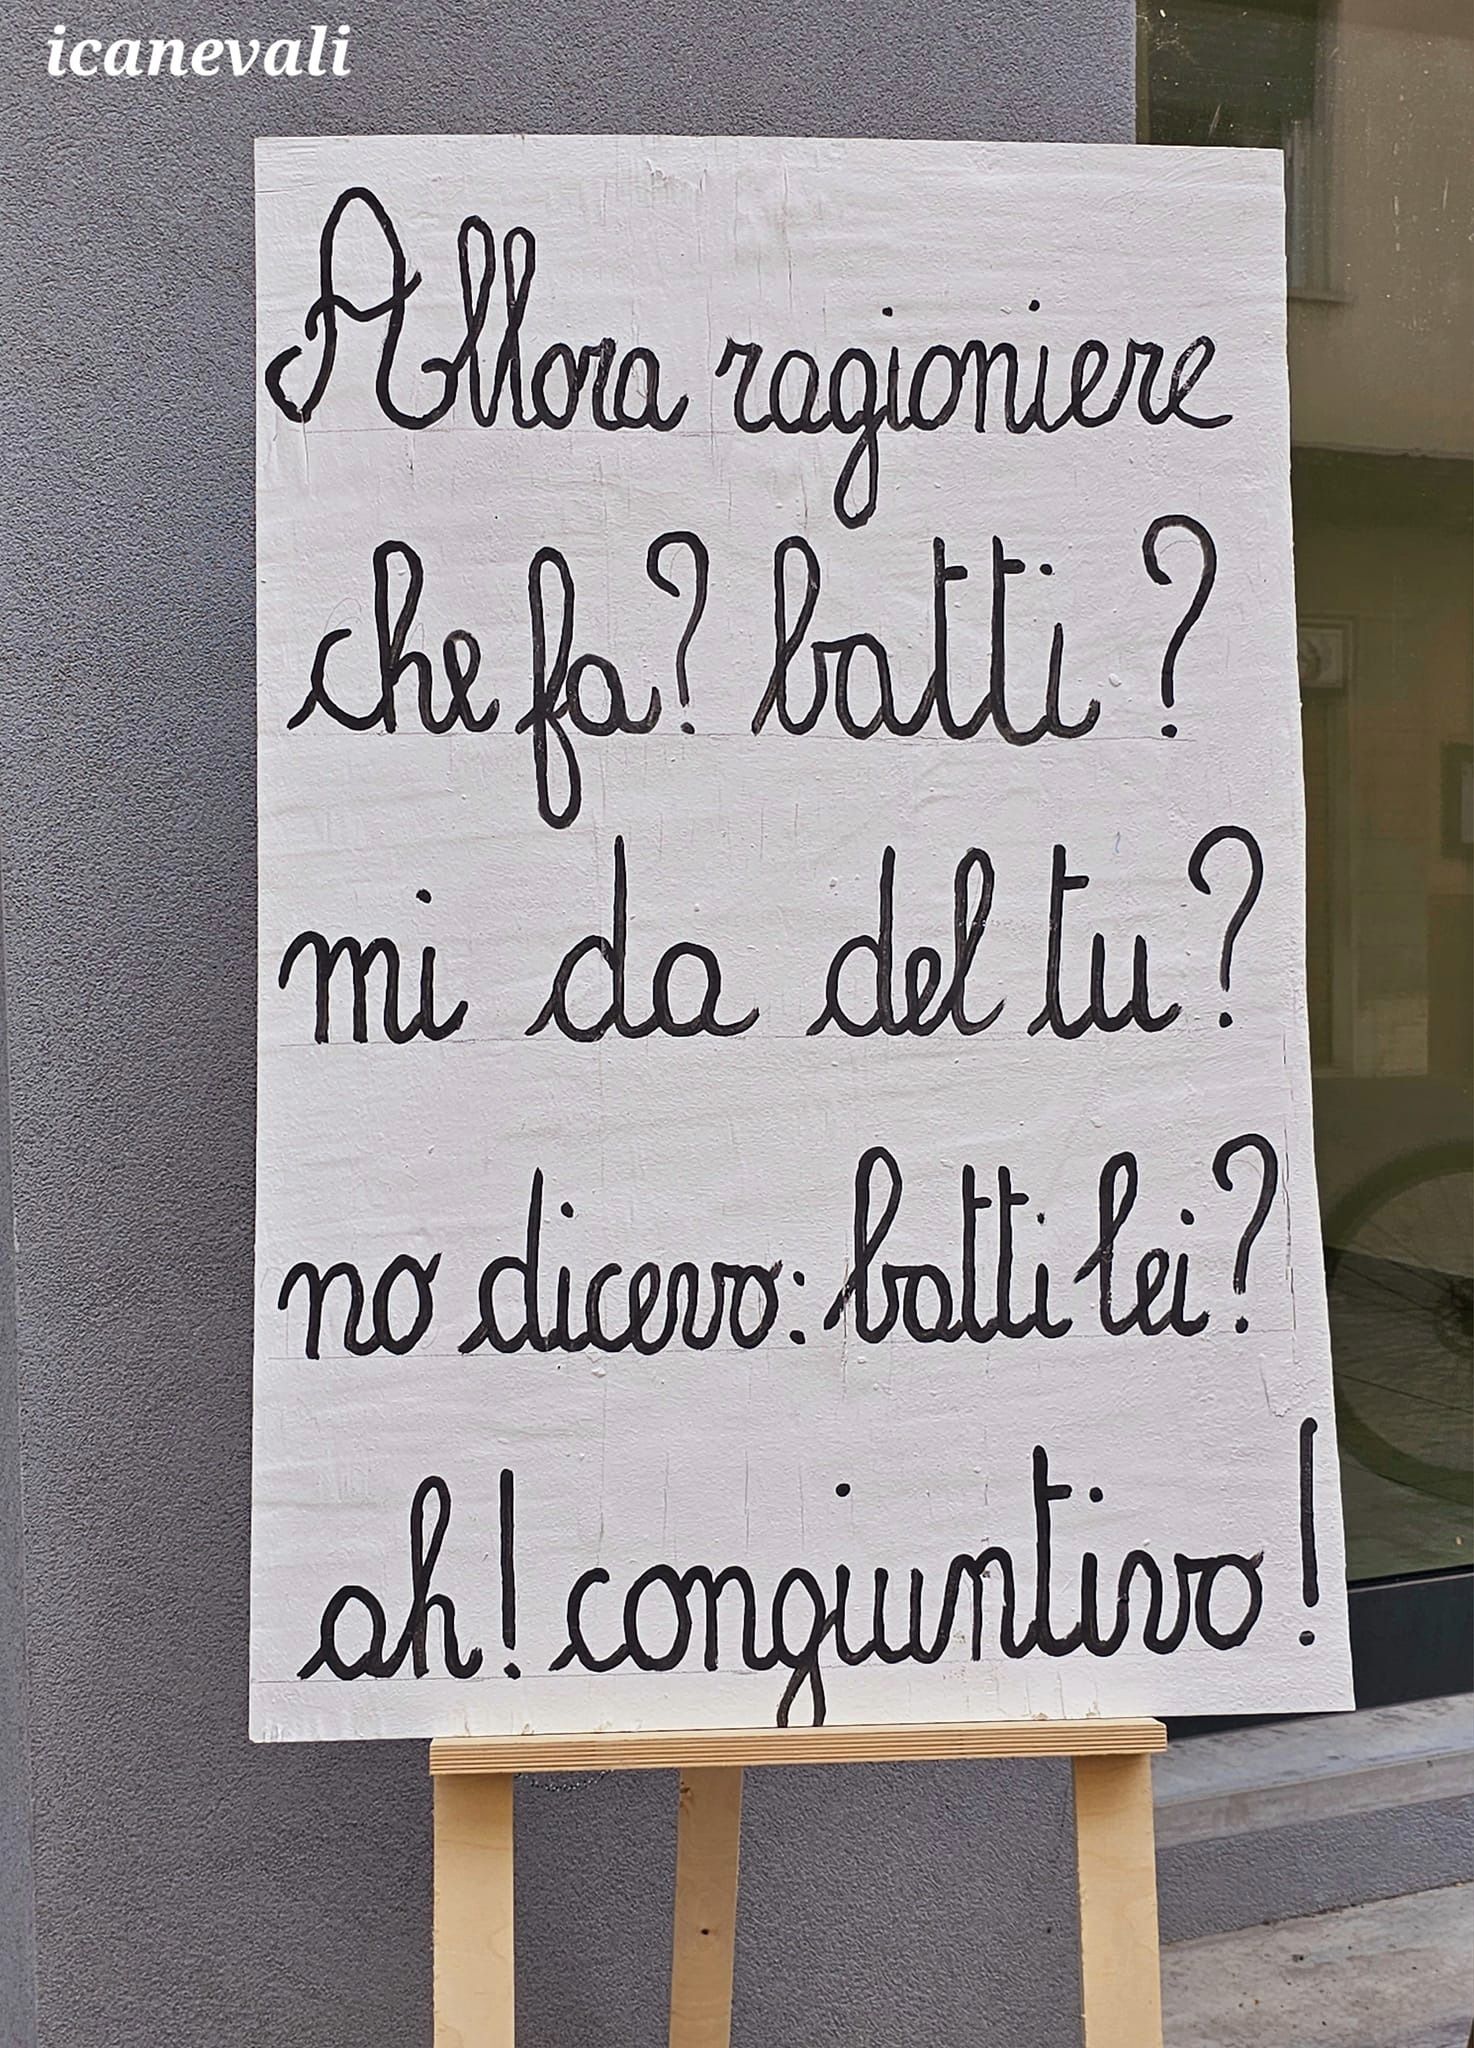 icanevali
Allora ragioniere
che fa? batti?
mi da del tu?
no dicevo: batti lei?
ah! congiuntivo!